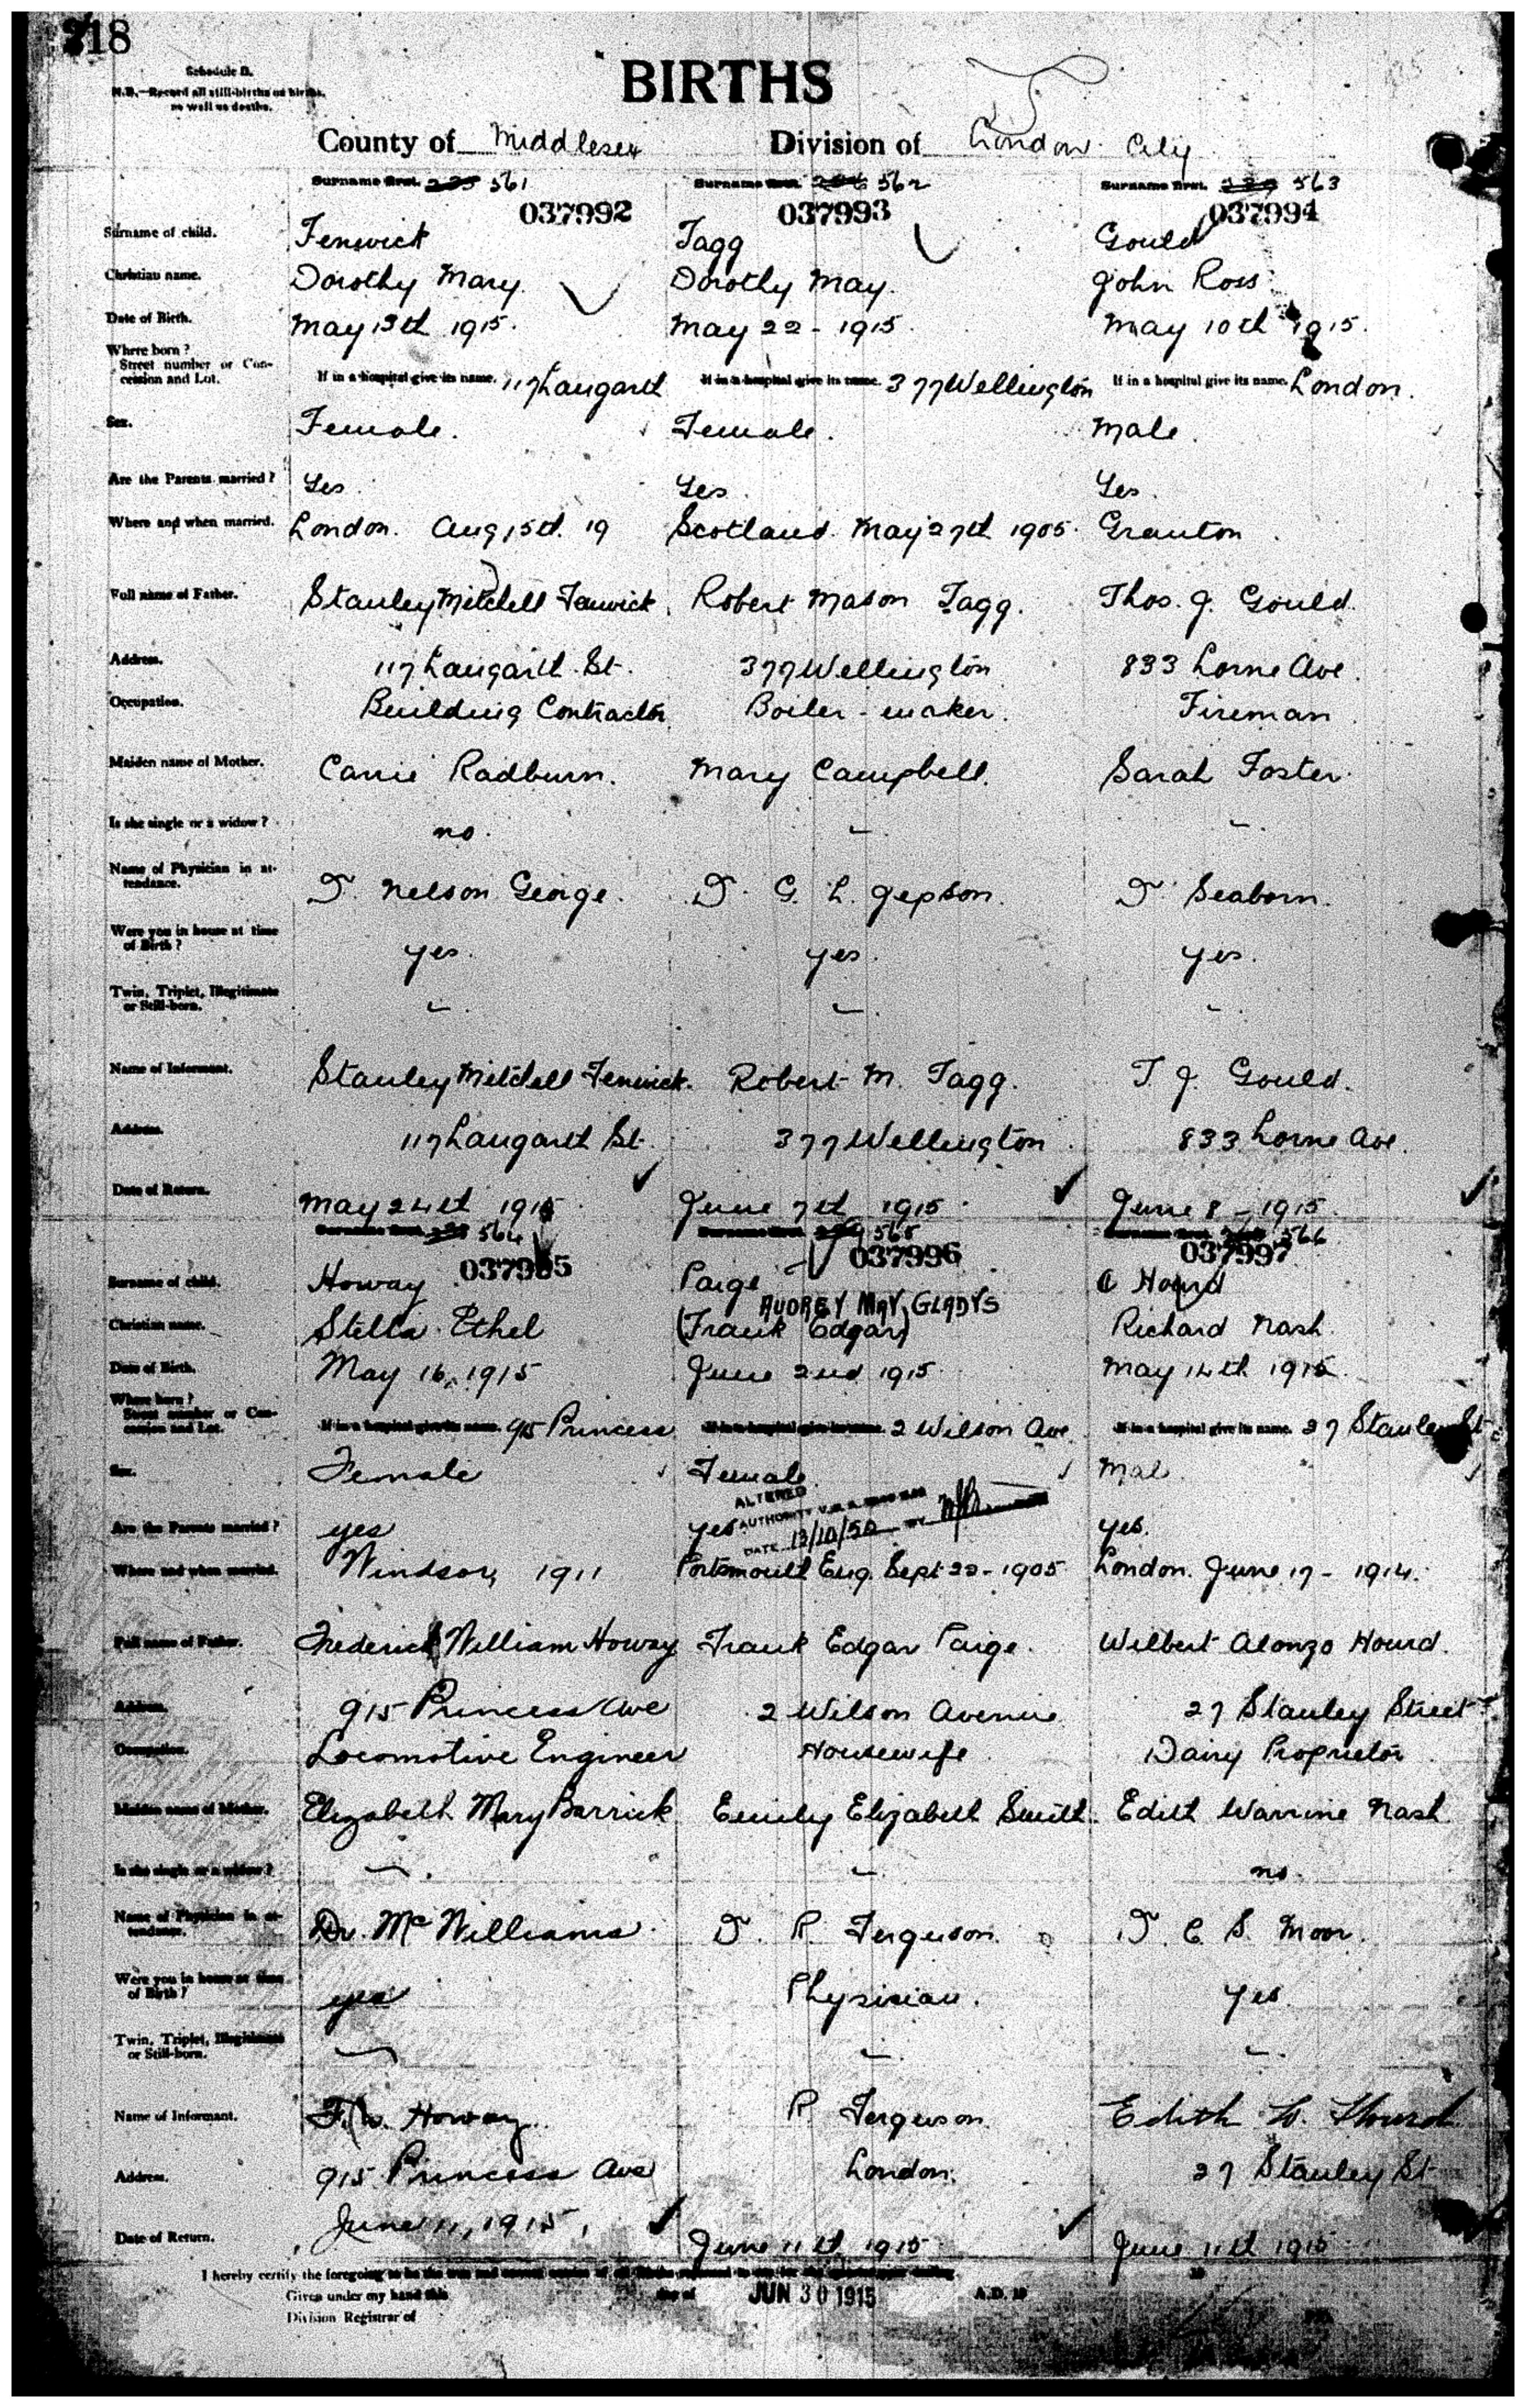 218
Schedule B.
N.B.—Record all still-births as births,
as well as deaths.
BIRTHS
County of Middlesex Division of London City
Surname first. 561 Surname first. 562 Surname first. 563
037992 037993 037994
Surname of child. Fenwick Tagg Gould
Christian name. Dorothy Mary. Dorothy May. John Ross
Date of Birth. May 13th 1915. May 22 - 1915. May 10th 1915.
Where born?
Street number or Con-
cession and Lot. If in a hospital give its name. 117 Langarth If in a hospital give its name. 377 Wellington If in a hospital give its name. London.
Sex. Female. Female. Male.
Are the Parents married? Yes. Yes. Yes.
Where and when married. London. Aug 15th. 19 Scotland. May 27th 1905. Granton.
Full name of Father. Stanley Mitchell Fenwick. Robert Mason Tagg. Thos. J. Gould.
Address. 117 Langarth St. 377 Wellington 833 Lorne Ave.
Occupation. Building Contractor Boiler-maker. Fireman
Maiden name of Mother. Carrie Radburn. Mary Campbell. Sarah Foster.
Is she single or a widow? no. - -
Name of Physician in at-
tendance. Dr. Nelson George. Dr. G. L. Jepson. Dr. Seaborn.
Were you in house at time
of Birth? yes. yes. yes.
Twin, Triplet, Illegitimate
or Still-born. - - -
Name of Informant. Stanley Mitchell Fenwick. Robert M. Tagg. T. J. Gould.
Address. 117 Langarth St. 377 Wellington 833 Lorne Ave.
Date of Return. May 24th 1915 June 7th 1915 June 8 - 1915.
Surname first. 564 Surname first. 565 Surname first. 566
037995 037996 037997
Surname of child. Howay Paige Hourd
AUDREY MAY GLADYS
Christian name. Stella Ethel (Frank Edgar) Richard Nash.
Date of Birth. May 16, 1915 June 2nd 1915. May 14th 1915.
Where born?
Street number or Con-
cession and Lot. If in a hospital give its name. 915 Princess If in a hospital give its name. 2 Wilson Ave. If in a hospital give its name. 27 Stanley St.
Sex. Female Female Mal
ALTERED
AUTHORITY V.S.A.
DATE 13/10/50 BY
Are the Parents married? yes yes yes.
Where and when married. Windsor, 1911 Portsmouth Eng. Sept 22 - 1905. London. June 17 - 1914.
Full name of Father. Frederick William Howay Frank Edgar Paige. Wilbert Alonzo Hourd.
Address. 915 Princess Ave 2 Wilson Avenue 27 Stanley Street
Occupation. Locomotive Engineer Housewife Dairy Proprietor
Maiden name of Mother. Elizabeth Mary Barrick Emily Elizabeth Smith. Edith Warrine Nash
Is she single or a widow? - - no.
Name of Physician in at-
tendance. Dr. McWilliams. Dr. R. Ferguson. Dr. C. S. Moor.
Were you in house at time
of Birth? yes Physician. yes.
Twin, Triplet, Illegitimate
or Still-born. - - -
Name of Informant. F. W. Howay. R. Ferguson. Edith W. Hourd
Address. 915 Princess Ave London. 27 Stanley St
Date of Return. June 11, 1915, June 11th 1915 June 11th 1915
I hereby certify the foregoing to be the true and correct
Given under my hand this day of JUN 30 1915 A.D. 19
Division Registrar of